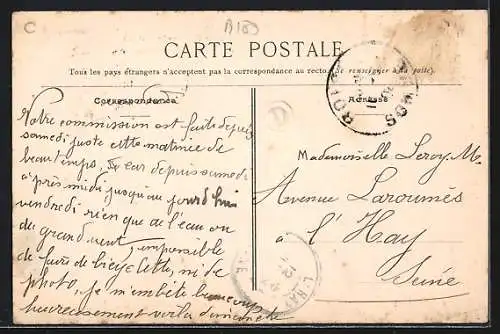 C
CARTE POSTALE
Tous les pays étrangers n'acceptent pas la correspondance au recto (Se renseigner à la poste).
Correspondance
Adresse
D
Votre commission est faite depuis
samedi juste cette matinée de
beau temps, car depuis samedi
après midi jusqu'au jourd'hui
vendredi rien que de l'eau ou
du grand vent, impossible
de faire de bicyclette, ni de
photo, je m'embête beaucoup
heureusement voilà dimanche
Mademoiselle Leroy. M.
Avenue Larounès
à l'Hay
Seine